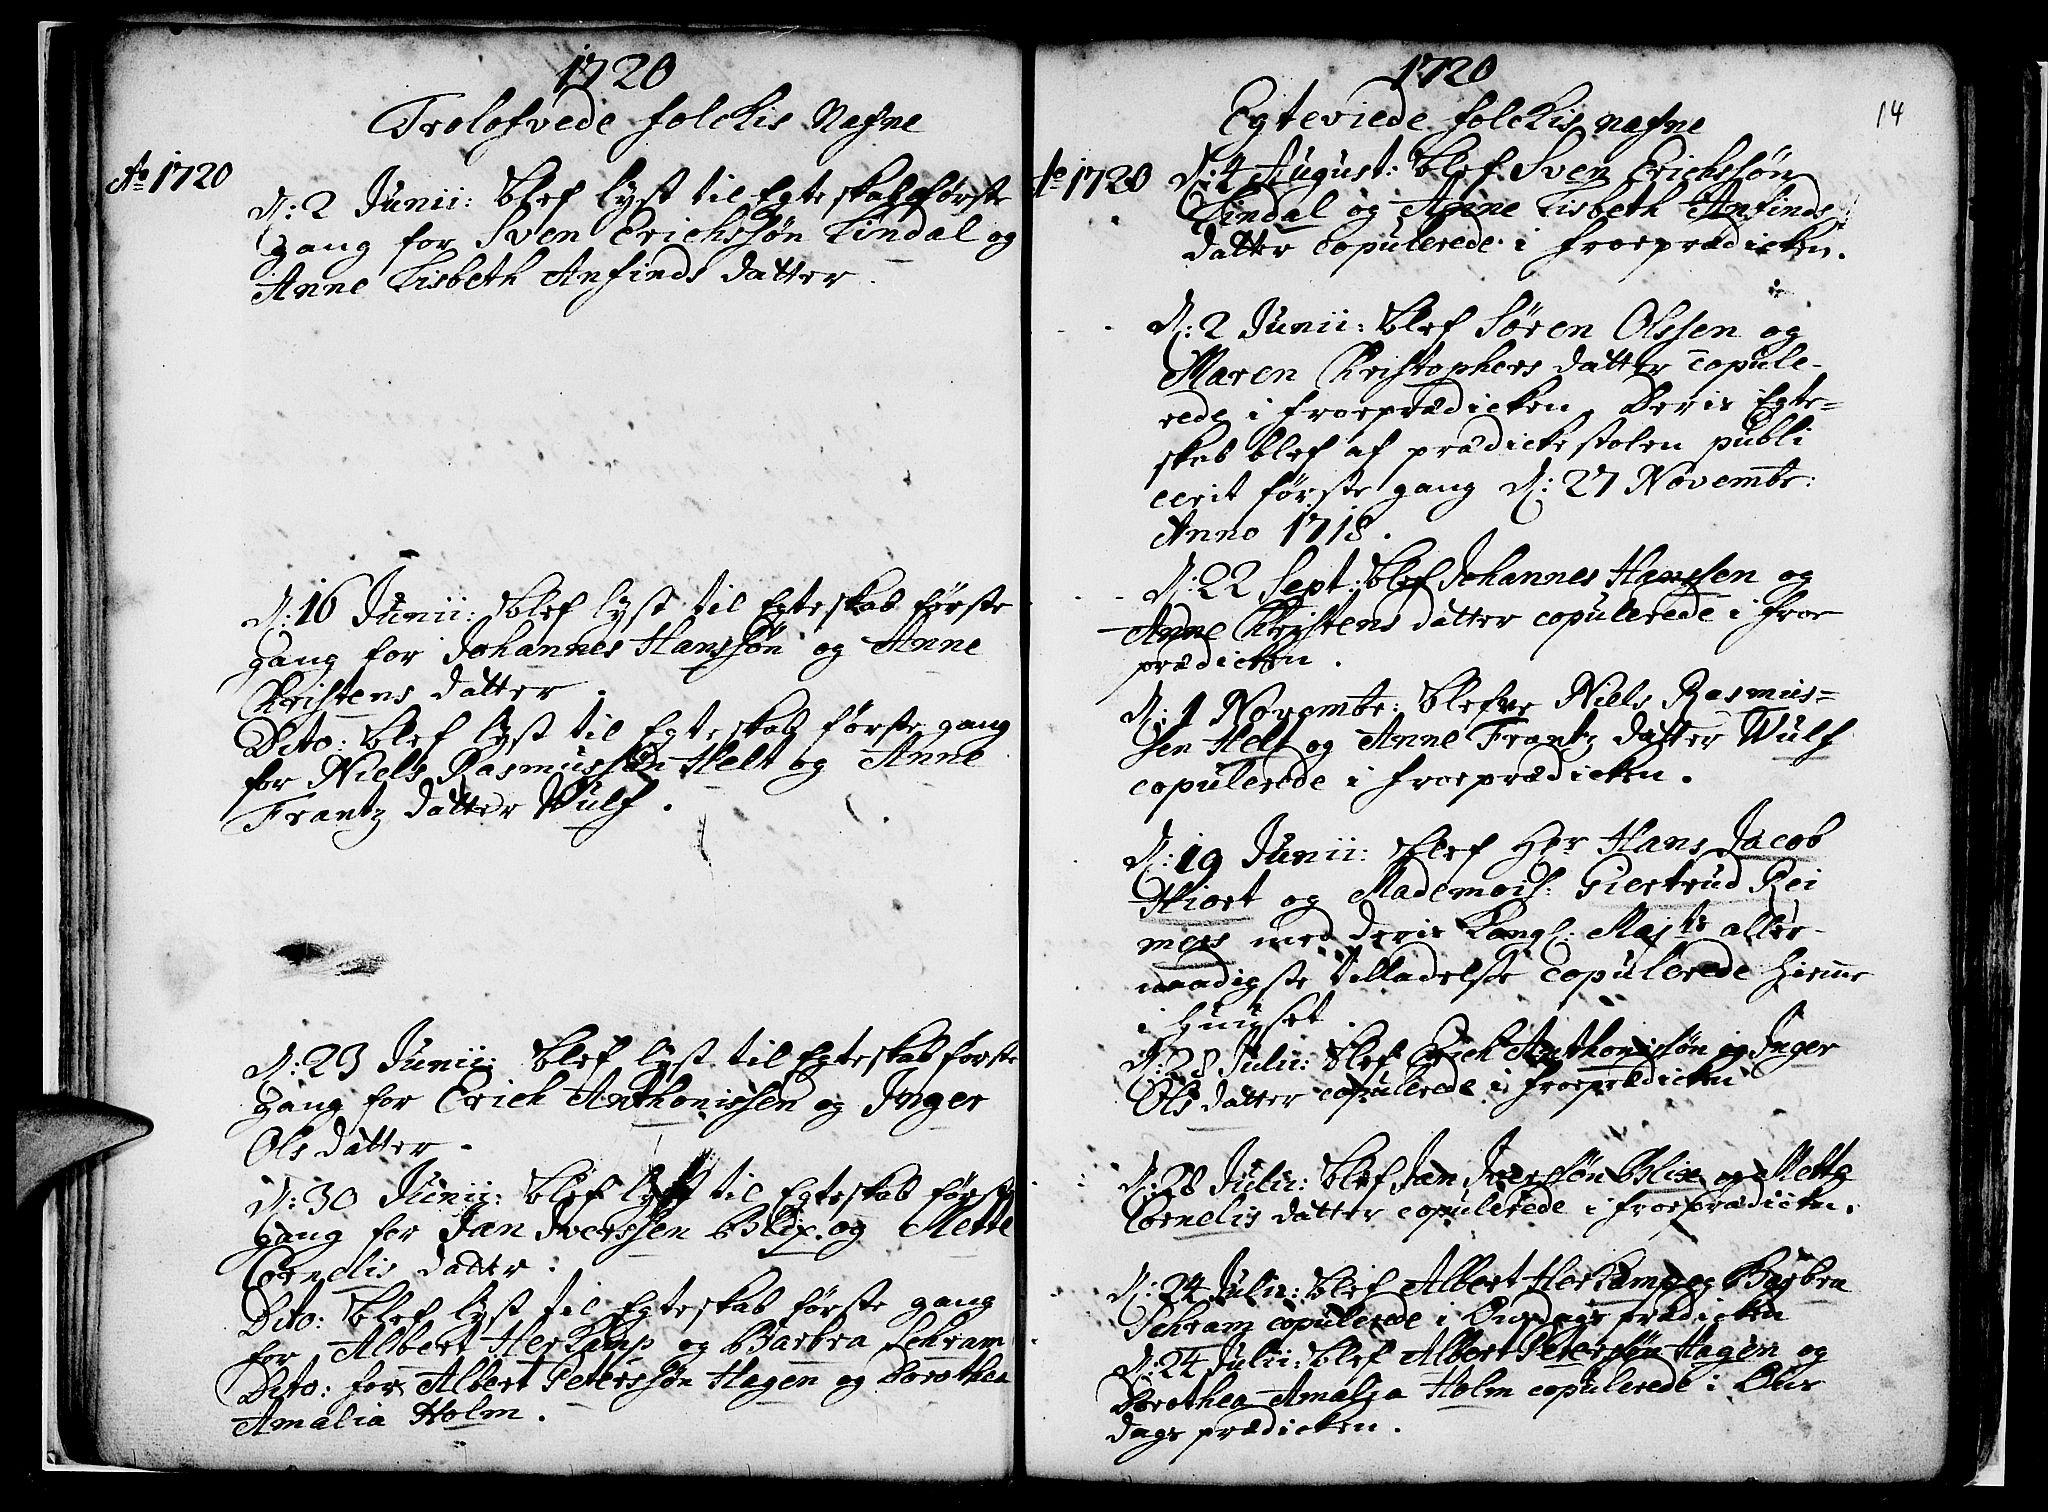 1720
Trolofvede folckis Nafne
Ao 1720
D: 2 Junii: blef lyst til Egteskab første
gang for Sven Erichssøn Lindal og
Anne Lisbeth Anfinds datter.
D: 16 Junii: blef lyst til Egteskab første
gang for Johannes Hanssøn og Anne
Christens datter.
Dito: blef lyst til Egteskab første gang
for Niels Rasmussøn Helt og Anne
Frantz datter Wulf.
D: 23 Junii: blef lyst til Egteskab første
gang for Erich Anthonissen og Inger
Ols datter.
D: 30 Junii: blef lyst til Egteskab første
gang for Jan Iverssen Blix og Mette
Cornelis datter:
Dito: blef lyst til Egteskab første gang
for Albert Herkamp og Barbra Schram
Dito: for Albert Peterssøn Hagen og Dorothea
Amalia Holm.
1720
14
Egteviede folckis nafne
Ao 1720
D: 4 August: blef Sven Erichssøn
Lindal og Anne Lisbeth Anfinds
datter copulerede i froeprædicken.
D: 2 Junii: blef Søren Olssen og
Maren Christophers datter copule-
rede i froeprædicken. Deris Egte=
skab blef af prædickestolen publi
cerit første gang D: 27 Novembr:
Anno 1718.
D: 22 Sept: blef Johannes Hanssen og
Anne Christens datter copulerede i froe
prædicken.
D: 1 Novembr: blefve Niels Rasmus=
sen Helt og Anne Frantz datter Wulf
copulerede i froeprædicken.
D: 19 Junii: blef Her Hans Jacob
Hiort og Mademois: Giertrud Rei
mers med deris Kongl: Majts aller-
naadigste tilladelse copulerede hiemme
i huuset.
D: 28 Julii: blef Erich Anthonissøn og Inger
Ols datter copulerede i froeprædicken
D: 28 Julii: blef Jan Iverssøn Blix og Mette
Cornelis datter copulerede i froeprædicken.
D: 24 Julii: blef Albert Herkamp og Barbra
Schram copulerede i Onsdags prædicken
D: 24 Julii: blef Albert Peterssøn Hagen og
Dorothea Amalia Holm copulerede i Ons
dags prædicken.